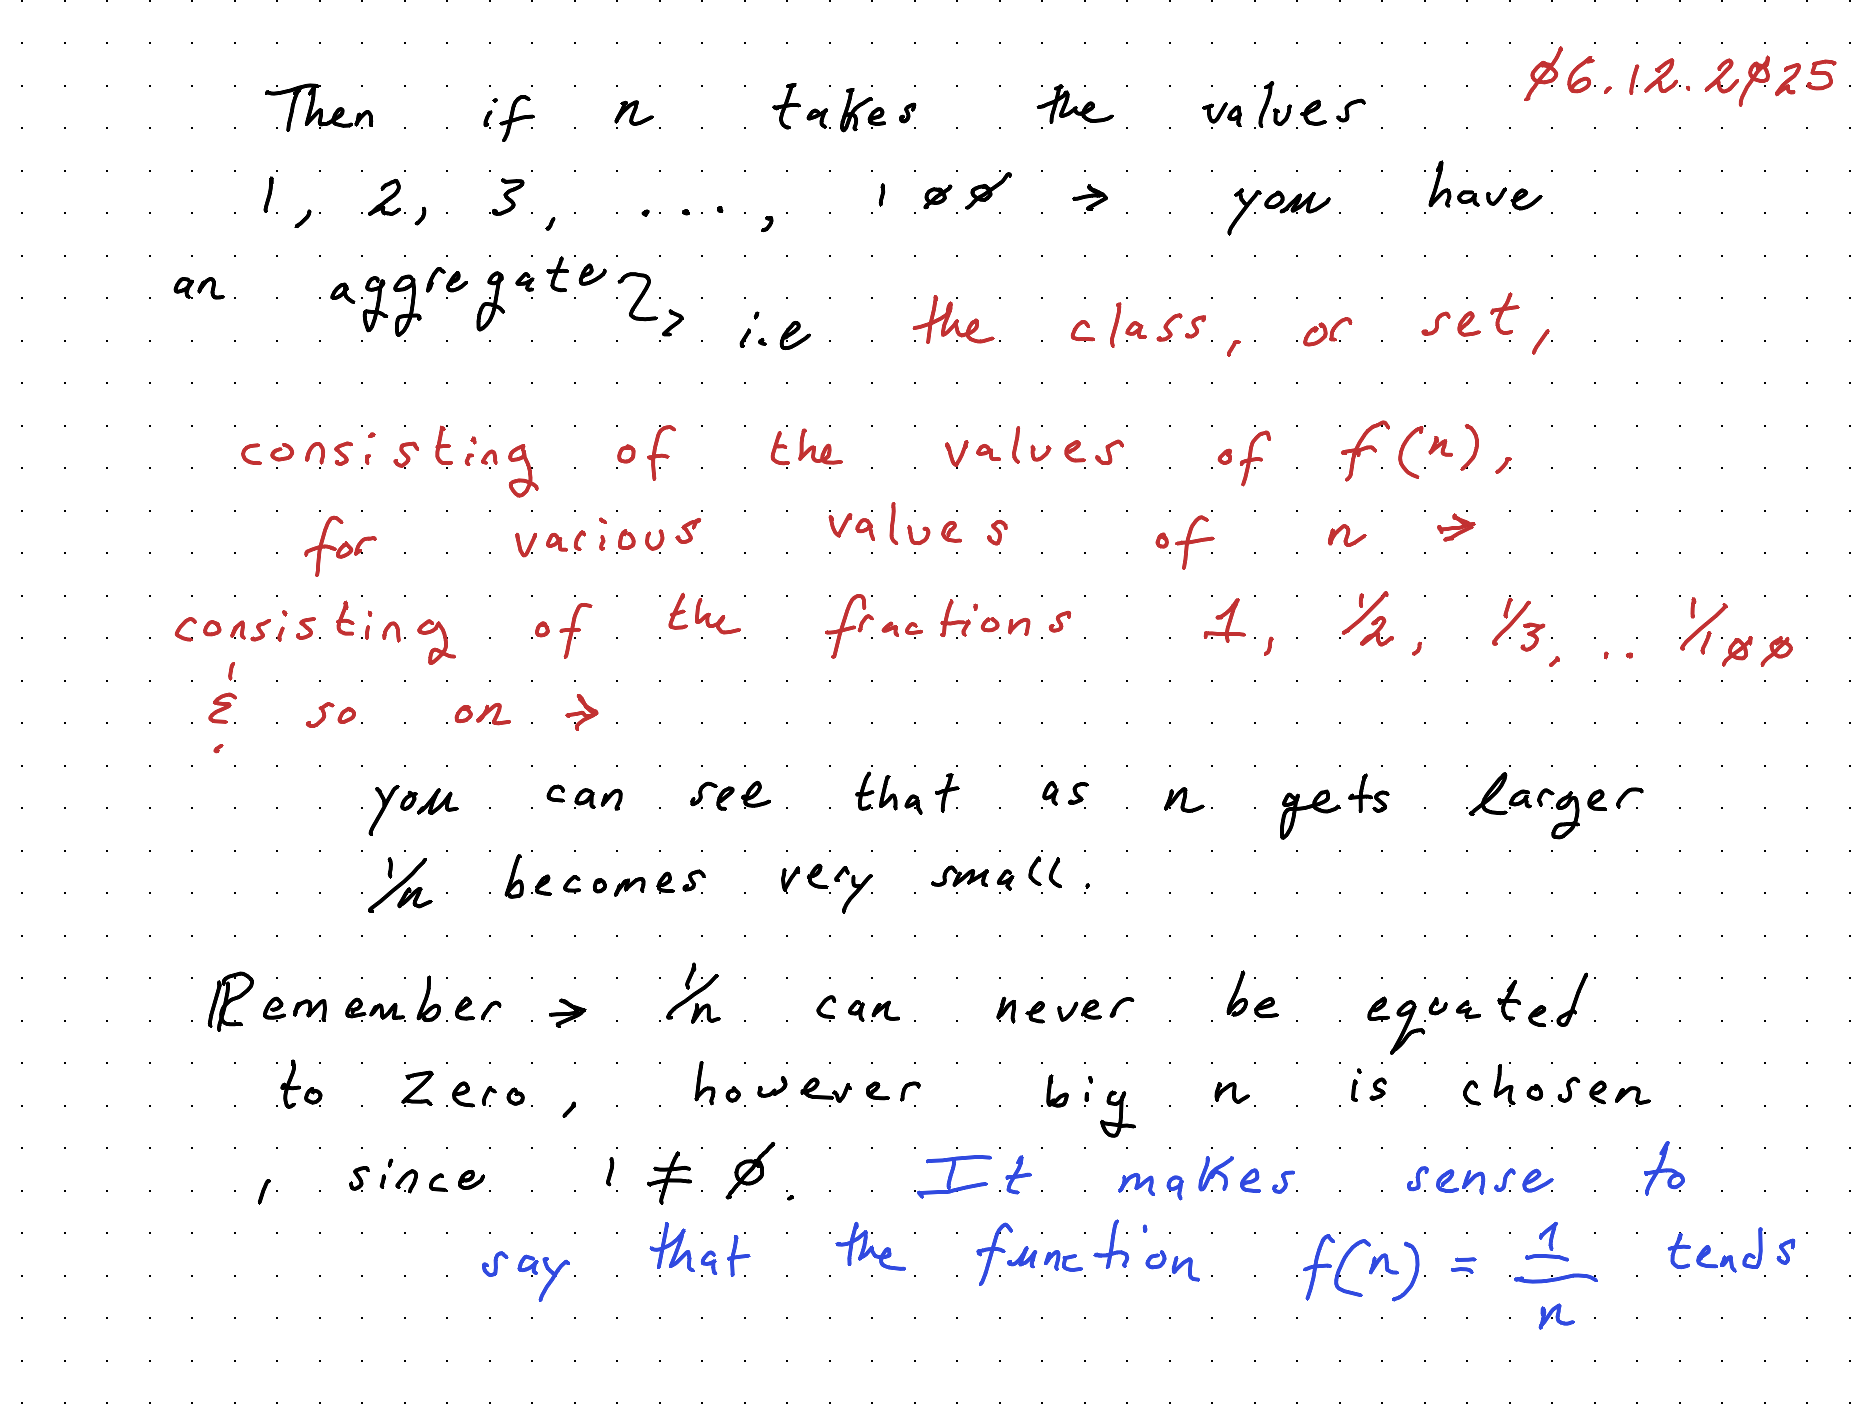 ø6.12.2ø25
Then if n takes the values
1, 2, 3, ...., 1øø → you have
an aggregate
i.e the class, or set,
consisting of the values of f(n),
for various values of n →
consisting of the fractions 1, 1/2, 1/3, .. 1/1øø
& so on →
you can see that as n gets larger
1/n becomes very small.
Remember → 1/n can never be equated
to zero, however big n is chosen
, since 1 ≠ ø. It makes sense to
say that the function f(n) = 1/n tends